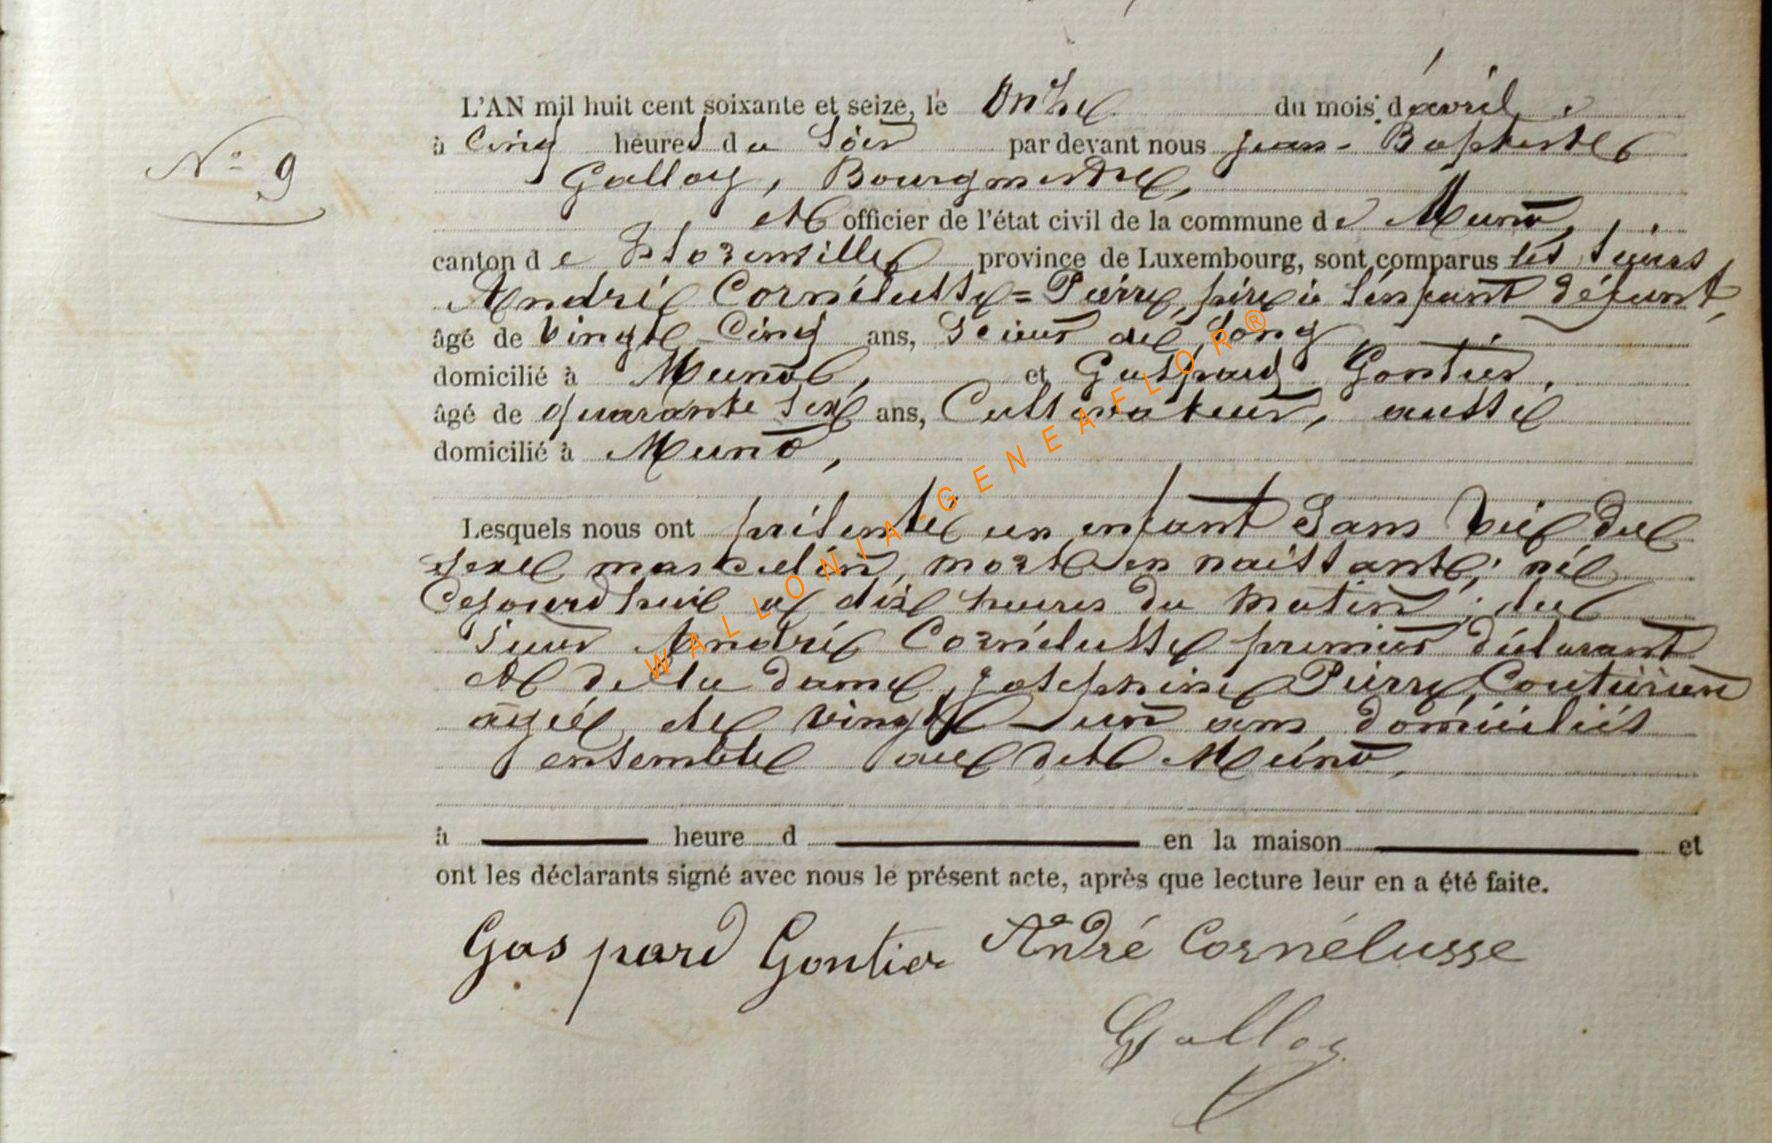 L'AN mil huit cent soixante et seize, le onze du mois d'avril,
N° 9
à cinq heures du soir par devant nous jean-Baptiste
Galloy, Bourgmestre,
et officier de l'état civil de la commune de Muno,
canton de Florenville province de Luxembourg, sont comparus les sieurs
André Cornélusse=Pierre, père à l'enfant défunt,
âgé de vingt-cinq ans, scieur de long
domicilié à Muno, et Gaspard Gontier,
âgé de quarante six ans, Cultivateur, aussi
domicilié à Muno,
Lesquels nous ont présenté un enfant sans vie du
sexe masculin, mort en naissant; né
cejourd'hui à dix heures du matin; du
sieur André Cornélusse premier déclarant
et de la dame Josephine Pierre, Couturière
agée de vingt-un ans domiciliés
ensemble au dit Muno,
à heure d en la maison et
ont les déclarants signé avec nous le présent acte, après que lecture leur en a été faite.
Gaspard Gontier André Cornélusse
Galloy
WALLONIA-GENEAFLOR®